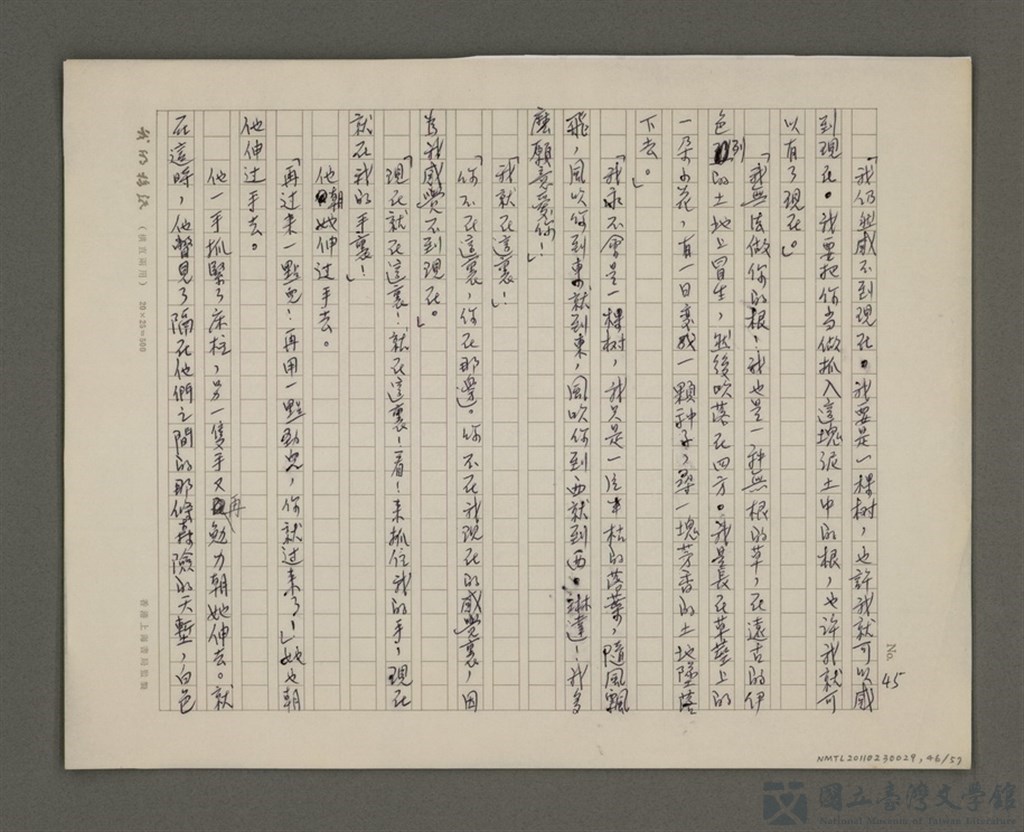 No. 45
「我仍然感不到現在。我要是一棵树，也許我就可以感
到現在。我要把你当做抓入這塊泥土中的根，也许我就可
以有了現在。」
「我無法做你的根！我也是一种無根的草，在遠古的伊
色列的土地上冒生，然後吹落在四方。我是長在草莖上的
一朵小花，有一日变成一顆种子，尋一塊芳香的土地墜落
下去。」
「我永不會是一棵树，我只是一片半枯的落葉，隨風飄
飛，風吹你到東就到東，風吹你到西就到西。琳達！我多
麼願意爱你！」
「我就在這裏！」
「你不在這裏，你在那邊。你不在我現在的感覺裏，因
為我感覺不到現在。」
「現在就在這裏！就在這裏！看！来抓住我的手，現在
就在我的手裏！」
他朝她伸过手去。
「再过来一點兒！再用一點勁兒，你就过来了！」她也朝
他伸过手去。
他一手抓緊了床柱，另一隻手又再勉力朝她伸去。就
在這時，他瞥見了隔在他們之間的那條森險的天塹，白色
(橫直兩用) 20×25=500
香港上海書局監製
NMTL20110230029, 46/57
國立臺灣文學館
National Museum of Taiwan Literature